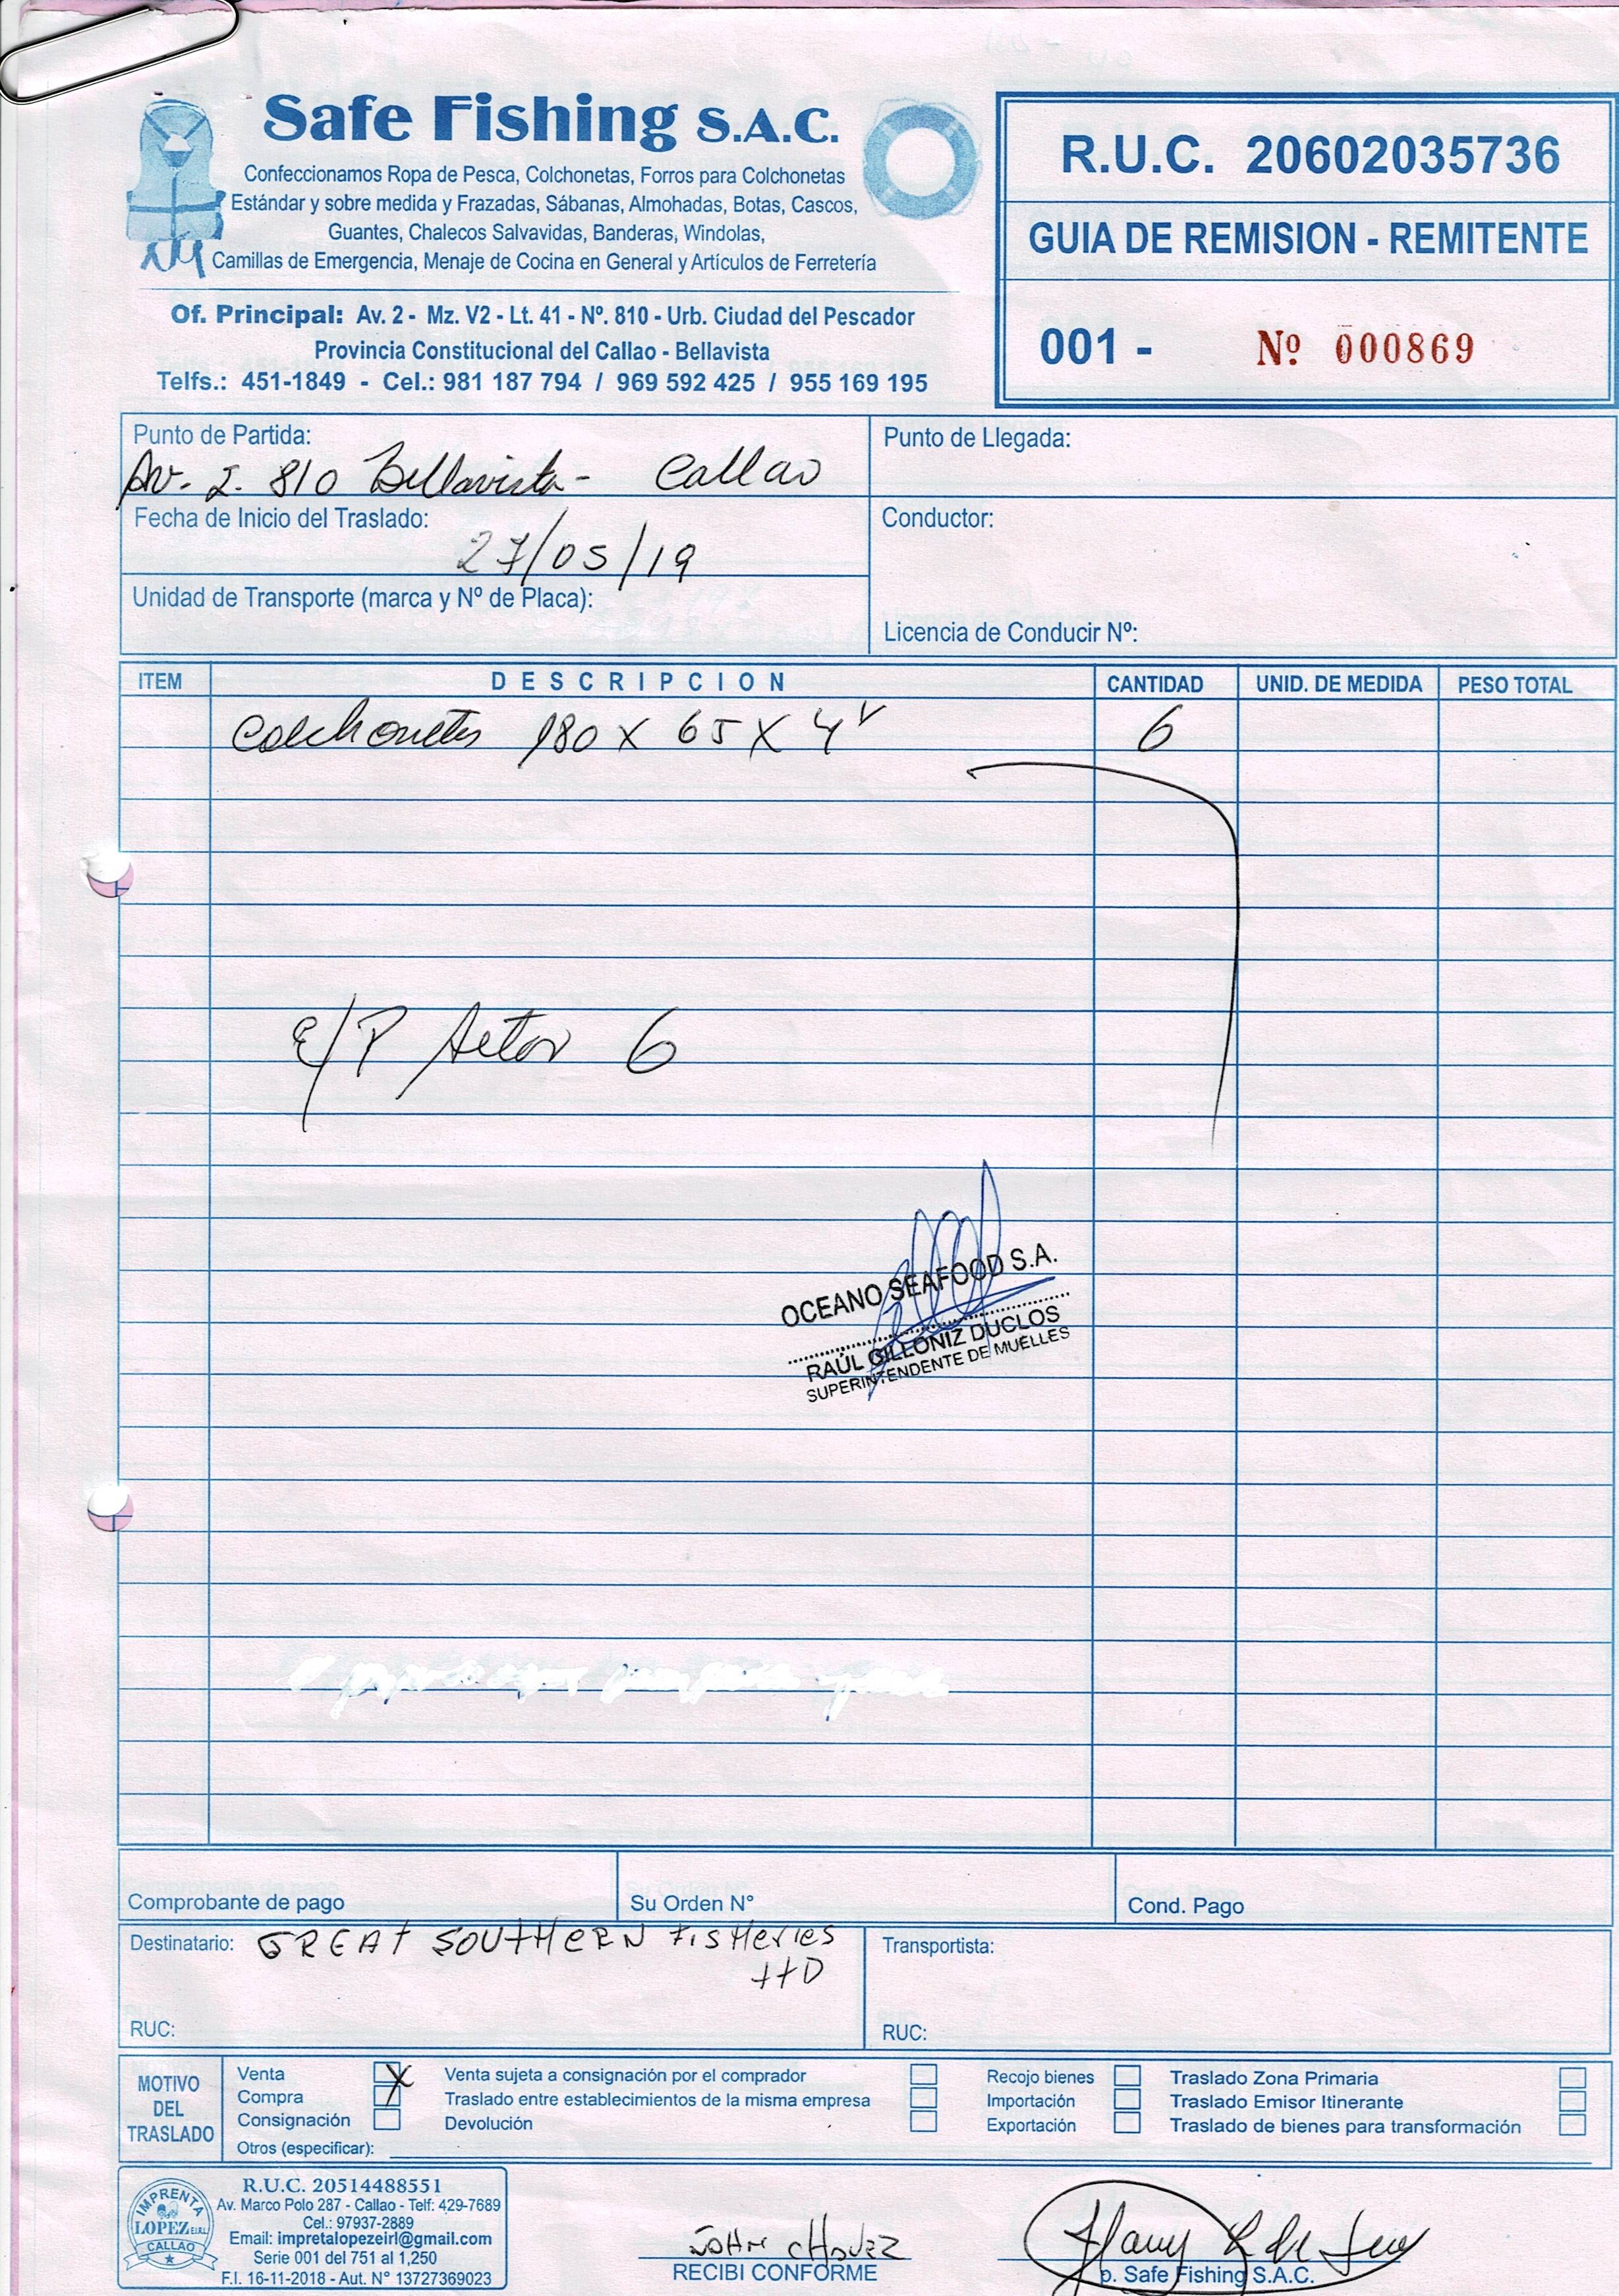 Safe Fishing S.A.C.
Confeccionamos Ropa de Pesca, Colchonetas, Forros para Colchonetas
Estándar y sobre medida y Frazadas, Sábanas, Almohadas, Botas, Cascos,
Guantes, Chalecos Salvavidas, Banderas, Windolas,
Camillas de Emergencia, Menaje de Cocina en General y Artículos de Ferretería
Of. Principal: Av. 2 - Mz. V2 - Lt. 41 - Nº. 810 - Urb. Ciudad del Pescador
Provincia Constitucional del Callao - Bellavista
Telfs.: 451-1849 - Cel.: 981 187 794 / 969 592 425 / 955 169 195
R.U.C. 20602035736
GUIA DE REMISION - REMITENTE
001 - Nº 000869
Punto de Partida:
Av. 2. 810 Bellavista - Callao
Punto de Llegada:
Fecha de Inicio del Traslado:
27/05/19
Conductor:
Unidad de Transporte (marca y Nº de Placa):
Licencia de Conducir Nº:
ITEM DESCRIPCION CANTIDAD UNID. DE MEDIDA PESO TOTAL
Colchonetas 180 X 65 X 4" 6
E/P 6
OCEANO SEAFOOD S.A.
RAÚL GILLONIZ DUCLOS
SUPERINTENDENTE DE MUELLES
Comprobante de pago
Su Orden N°
Cond. Pago
Destinatario: GREAT SOUTHERN FISHERIES
LTD
RUC:
Transportista:
RUC:
MOTIVO
DEL
TRASLADO
Venta X
Compra
Consignación
Otros (especificar):
Venta sujeta a consignación por el comprador
Traslado entre establecimientos de la misma empresa
Devolución
Recojo bienes
Importación
Exportación
Traslado Zona Primaria
Traslado Emisor Itinerante
Traslado de bienes para transformación
IMPRENTA
LOPEZ E.I.R.L.
CALLAO
R.U.C. 20514488551
Av. Marco Polo 287 - Callao - Telf: 429-7689
Cel.: 97937-2889
Email: impretalopezeirl@gmail.com
Serie 001 del 751 al 1,250
F.I. 16-11-2018 - Aut. N° 13727369023
JOHN CHAVEZ
RECIBI CONFORME
p. Safe Fishing S.A.C.